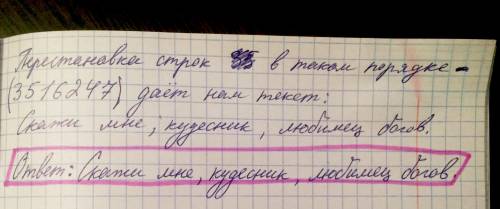 Перестановка строк в таком порядке -
(3516247) даёт нам текст:
Скажи мне, кудесник, любимец богов.
Ответ: Скажи мне, кудесник, любимец богов.